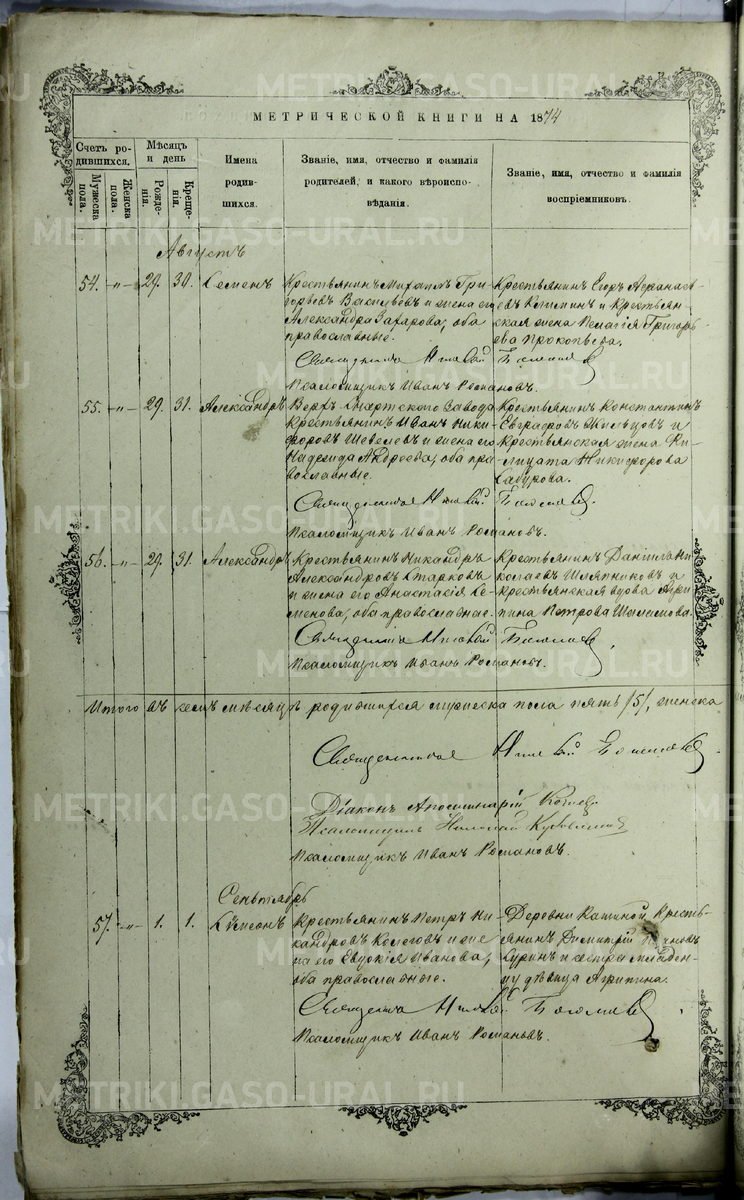 МЕТРИЧЕСКОЙ КНИГИ НА 1874
Счетъ родившихся.
Мужеска пола.
Женска пола.
Мѣсяцъ и день
Рожденія.
Крещенія.
Имена родившихся.
Званіе, имя, отчество и фамилія родителей, и какого вѣроисповѣданія.
Званіе, имя, отчество и фамилія воспріемниковъ.
Августъ
54. -„- 29. 30. Семенъ
Крестьянинъ Михаилъ Григорьевъ Васильевъ и жена его
Александра Захарова, оба
православные.
Крестьянинъ Егоръ Афанасьевъ и Крестьянская жена Пелагія Григорьева Прокопьева.
Священникъ
Псаломщикъ Иванъ Романовъ.
55. -„- 29. 31. Александръ
Верхъ- Завода
крестьянинъ Иванъ Никифоровъ Шевелевъ и жена его
Надежда Андреева, оба православные.
Крестьянинъ Константинъ
Евграфовъ Жильцовъ и
крестьянская жена
Никифорова
Сабурова.
Священникъ
Псаломщикъ Иванъ Романовъ.
56. -„- 29. 31. Александръ
Крестьянинъ Никандръ
Александровъ Старковъ
и жена его Анастасія Семенова, оба православные.
Крестьянинъ Даніилъ Николаевъ Шляпниковъ и
крестьянская вдова Агрипина Петрова
Священникъ
Псаломщикъ Иванъ Романовъ.
Итого въ семъ мѣсяцѣ родившихся мужеска пола пять /5/, женска
Священникъ
Діаконъ
Псаломщикъ Николай
Псаломщикъ Иванъ Романовъ.
Сентябрь
57. -„- 1. 1. Сѵмеонъ
Крестьянинъ Петръ Никандровъ и жена его Евдокія Иванова,
оба православные.
Деревни Кашиной, Крестьянинъ Димитрій
Куринъ и сестра младенцу дѣвица Агрипина.
Священникъ
Псаломщикъ Иванъ Романовъ.
METRIKI.GASO-URAL.RU